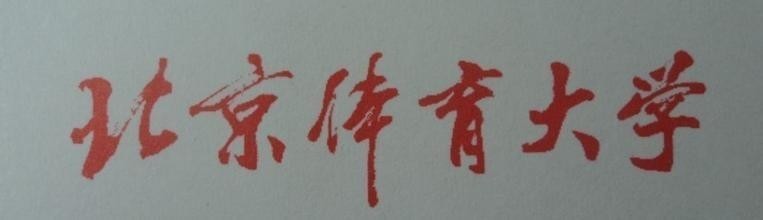 北京体育大学